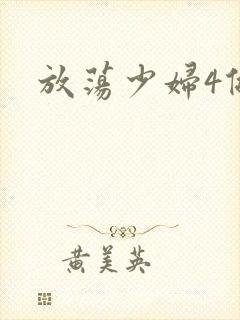 放荡少婦4
黄美英